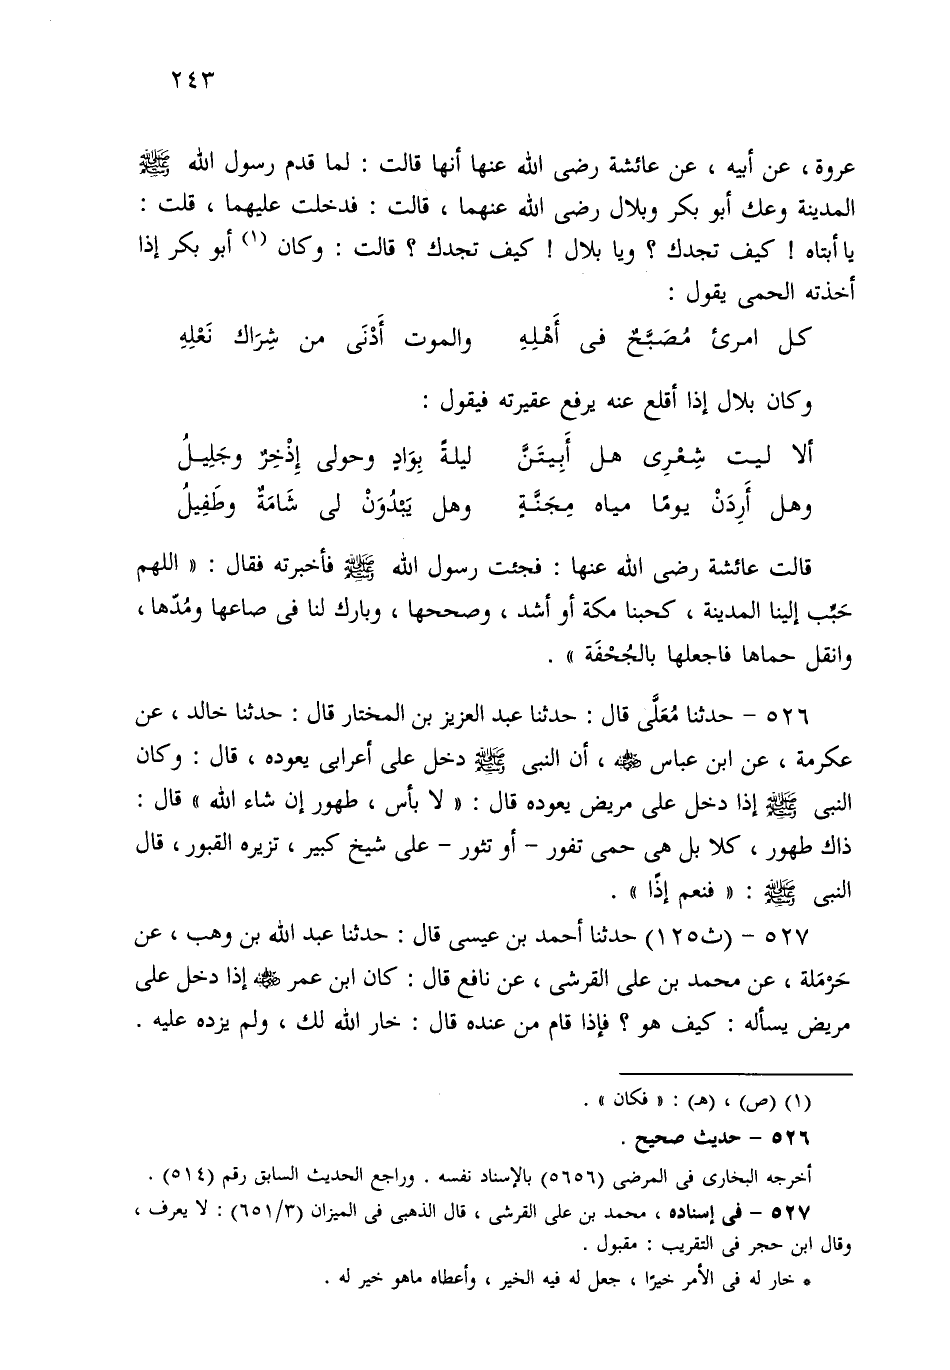 ٢٤٣
عروة ، عن أبيه ، عن عائشة رضى الله عنها أنها قالت : لما قدم رسول الله ﷺ
المدينة وعك أبو بكر وبلال رضى الله عنهما ، قالت : فدخلت عليهما ، قلت :
يا أبتاه ! كيف تجدك ؟ ويا بلال ! كيف تجدك ؟ قالت : وكان (١) أبو بكر إذا
أخذته الحمى يقول :
كل امرئ مُصَبَّحٌ فى أَهْلِهِ والموت أَدْنَى من شِرَاك نَعْلِهِ
وكان بلال إذا أقلع عنه يرفع عقيرته فيقول :
ألا ليت شِعْرِى هل أَبِيتَنَّ ليلةً بِوَادٍ وحولى إِذْخِرٌ وجَلِيلُ
وهل أَرِدَنْ يومًا مياه مِجَنَّةٍ وهل يَبْدُوَنْ لى شَامَةٌ وطَفِيلُ
قالت عائشة رضى الله عنها : فجئت رسول الله ﷺ فأخبرته فقال : « اللهم
حَبِّب إلينا المدينة ، كحبنا مكة أو أشد ، وصححها ، وبارك لنا فى صاعها ومُدّها ،
وانقل حماها فاجعلها بالجُحْفَة » .
٥٢٦ – حدثنا مُعَلَّى قال : حدثنا عبد العزيز بن المختار قال : حدثنا خالد ، عن
عكرمة ، عن ابن عباس رضي الله عنه ، أن النبى ﷺ دخل على أعرابى يعوده ، قال : وكان
النبى ﷺ إذا دخل على مريض يعوده قال : « لا بأس ، طهور إن شاء الله » قال :
ذاك طهور ، كلا بل هى حمى تفور – أو تثور – على شيخ كبير ، تزيره القبور ، قال
النبى ﷺ : « فنعم إذًا » .
٥٢٧ – (ث١٢٥) حدثنا أحمد بن عيسى قال : حدثنا عبد الله بن وهب ، عن
حَرْمَلة ، عن محمد بن على القرشى ، عن نافع قال : كان ابن عمر رضي الله عنه إذا دخل على
مريض يسأله : كيف هو ؟ فإذا قام من عنده قال : خار الله لك ، ولم يزده عليه .
(١) (ص) ، (هـ) : « فكان » .
٥٢٦ – حديث صحيح .
أخرجه البخارى فى المرضى (٥٦٥٦) بالإسناد نفسه . وراجع الحديث السابق رقم (٥١٤) .
٥٢٧ – فى إسناده ، محمد بن على القرشى ، قال الذهبى فى الميزان (٦٥١/٣) : لا يعرف ،
وقال ابن حجر فى التقريب : مقبول .
* خار له فى الأمر خيرًا ، جعل له فيه الخير ، وأعطاه ماهو خير له .